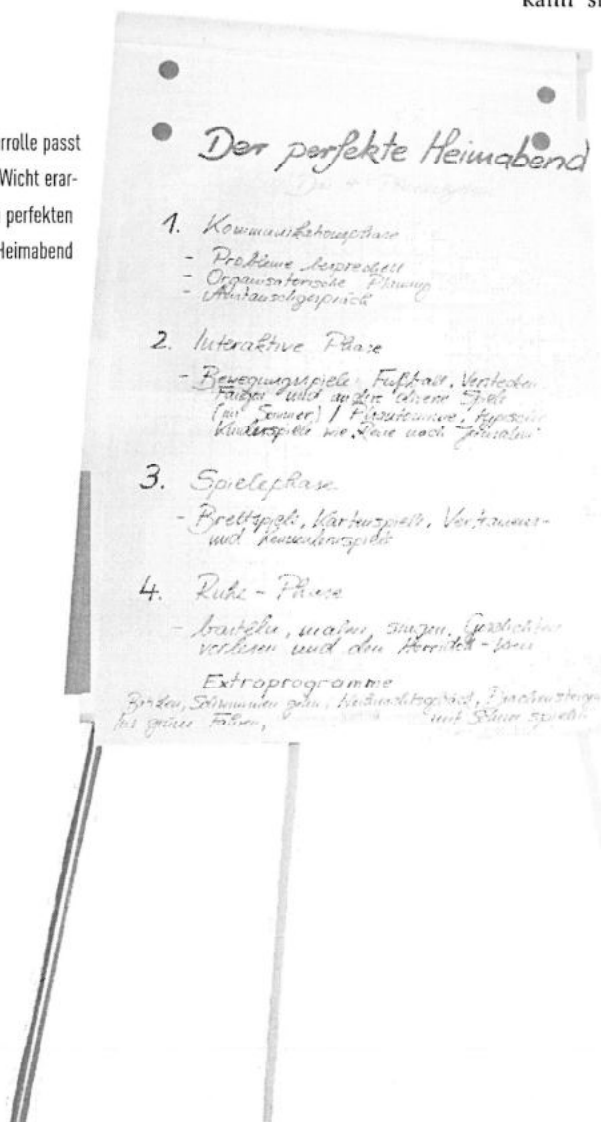 rrolle passt
Wicht erar-
perfekten
Heimabend
Der perfekte Heimabend
1. Kommunikationsphase
- Probleme besprechen
- Organisatorische Planung
- Austauschgespräch
2. Interaktive Phase
- Bewegungsspiele: Fußball, Verstecken
Fangen und andere Spiele
(im Sommer) / Pantomime, typische
Kinderspiele wie "Reise nach Jerusalem"
3. Spielephase
- Brettspiele, Kartenspiele, Vertrauens-
und
4. Ruhe-Phase
- basteln, malen, singen, Geschichten
vorlesen und den
Extraprogramme
Schwimmen gehen, Drachen steigen
Fahren, mit spielen